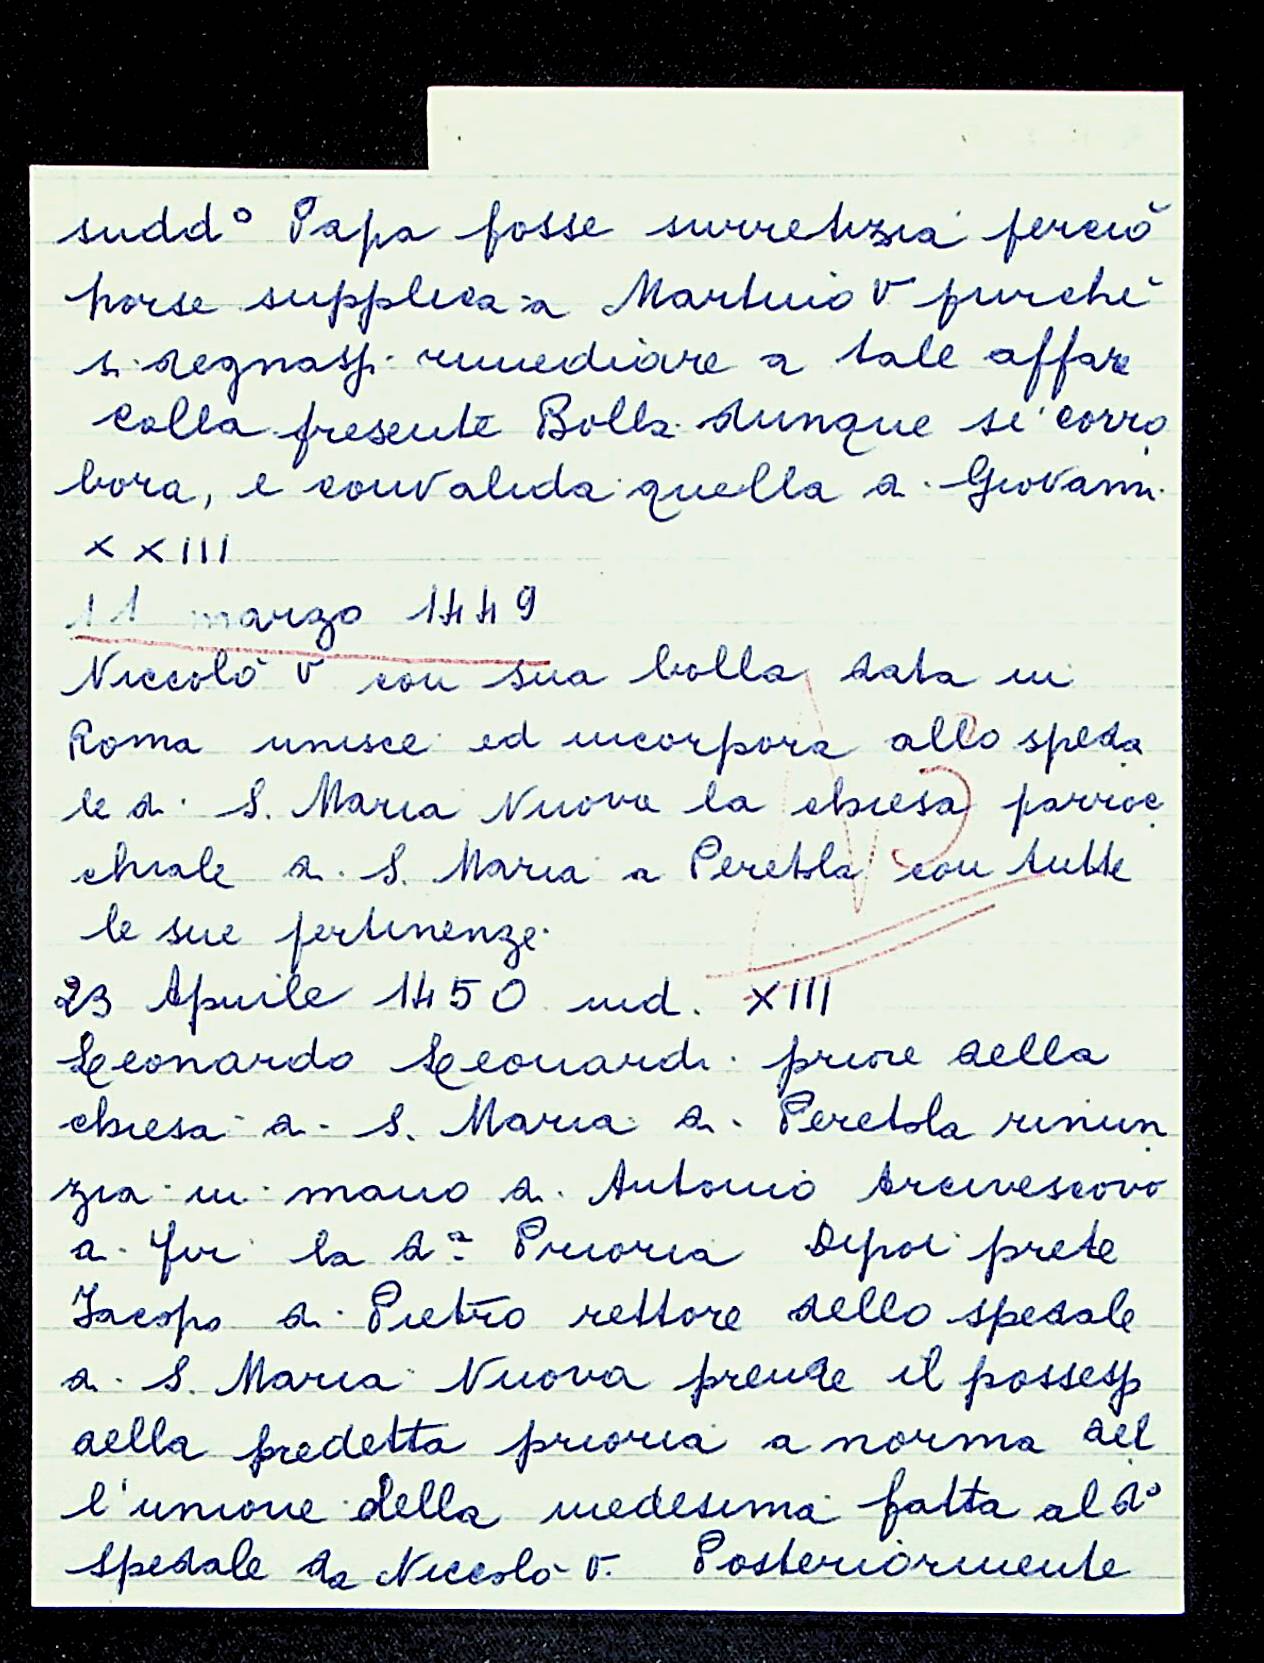 sudd° Papa fosse surretizia perciò
porse supplica a Martino V purchè
si degnassi rimediare a tale affare
colla presente Bolla dunque si corro
bora, e convalida quella di Giovanni
XXIII
11 marzo 1449
Niccolò V con sua bolla data in
Roma unisce ed incorpora allo speda
le di S. Maria Nuova la chiesa parroc
chiale di S. Maria a Peretola con tutte
le sue pertinenze.
23 Aprile 1450 ind. XIII
Leonardo Leonardi priore della
chiesa di S. Maria di Peretola rinun
zia in mano di Antonio Arcivescovo
di Fir la dª Prioria Dipoi prete
Jacopo di Pietro rettore dello spedale
di S. Maria Nuova prende il possesso
della predetta prioria a norma del
l'unione della medesima fatta al d°
spedale da Niccolò V. Posteriormente